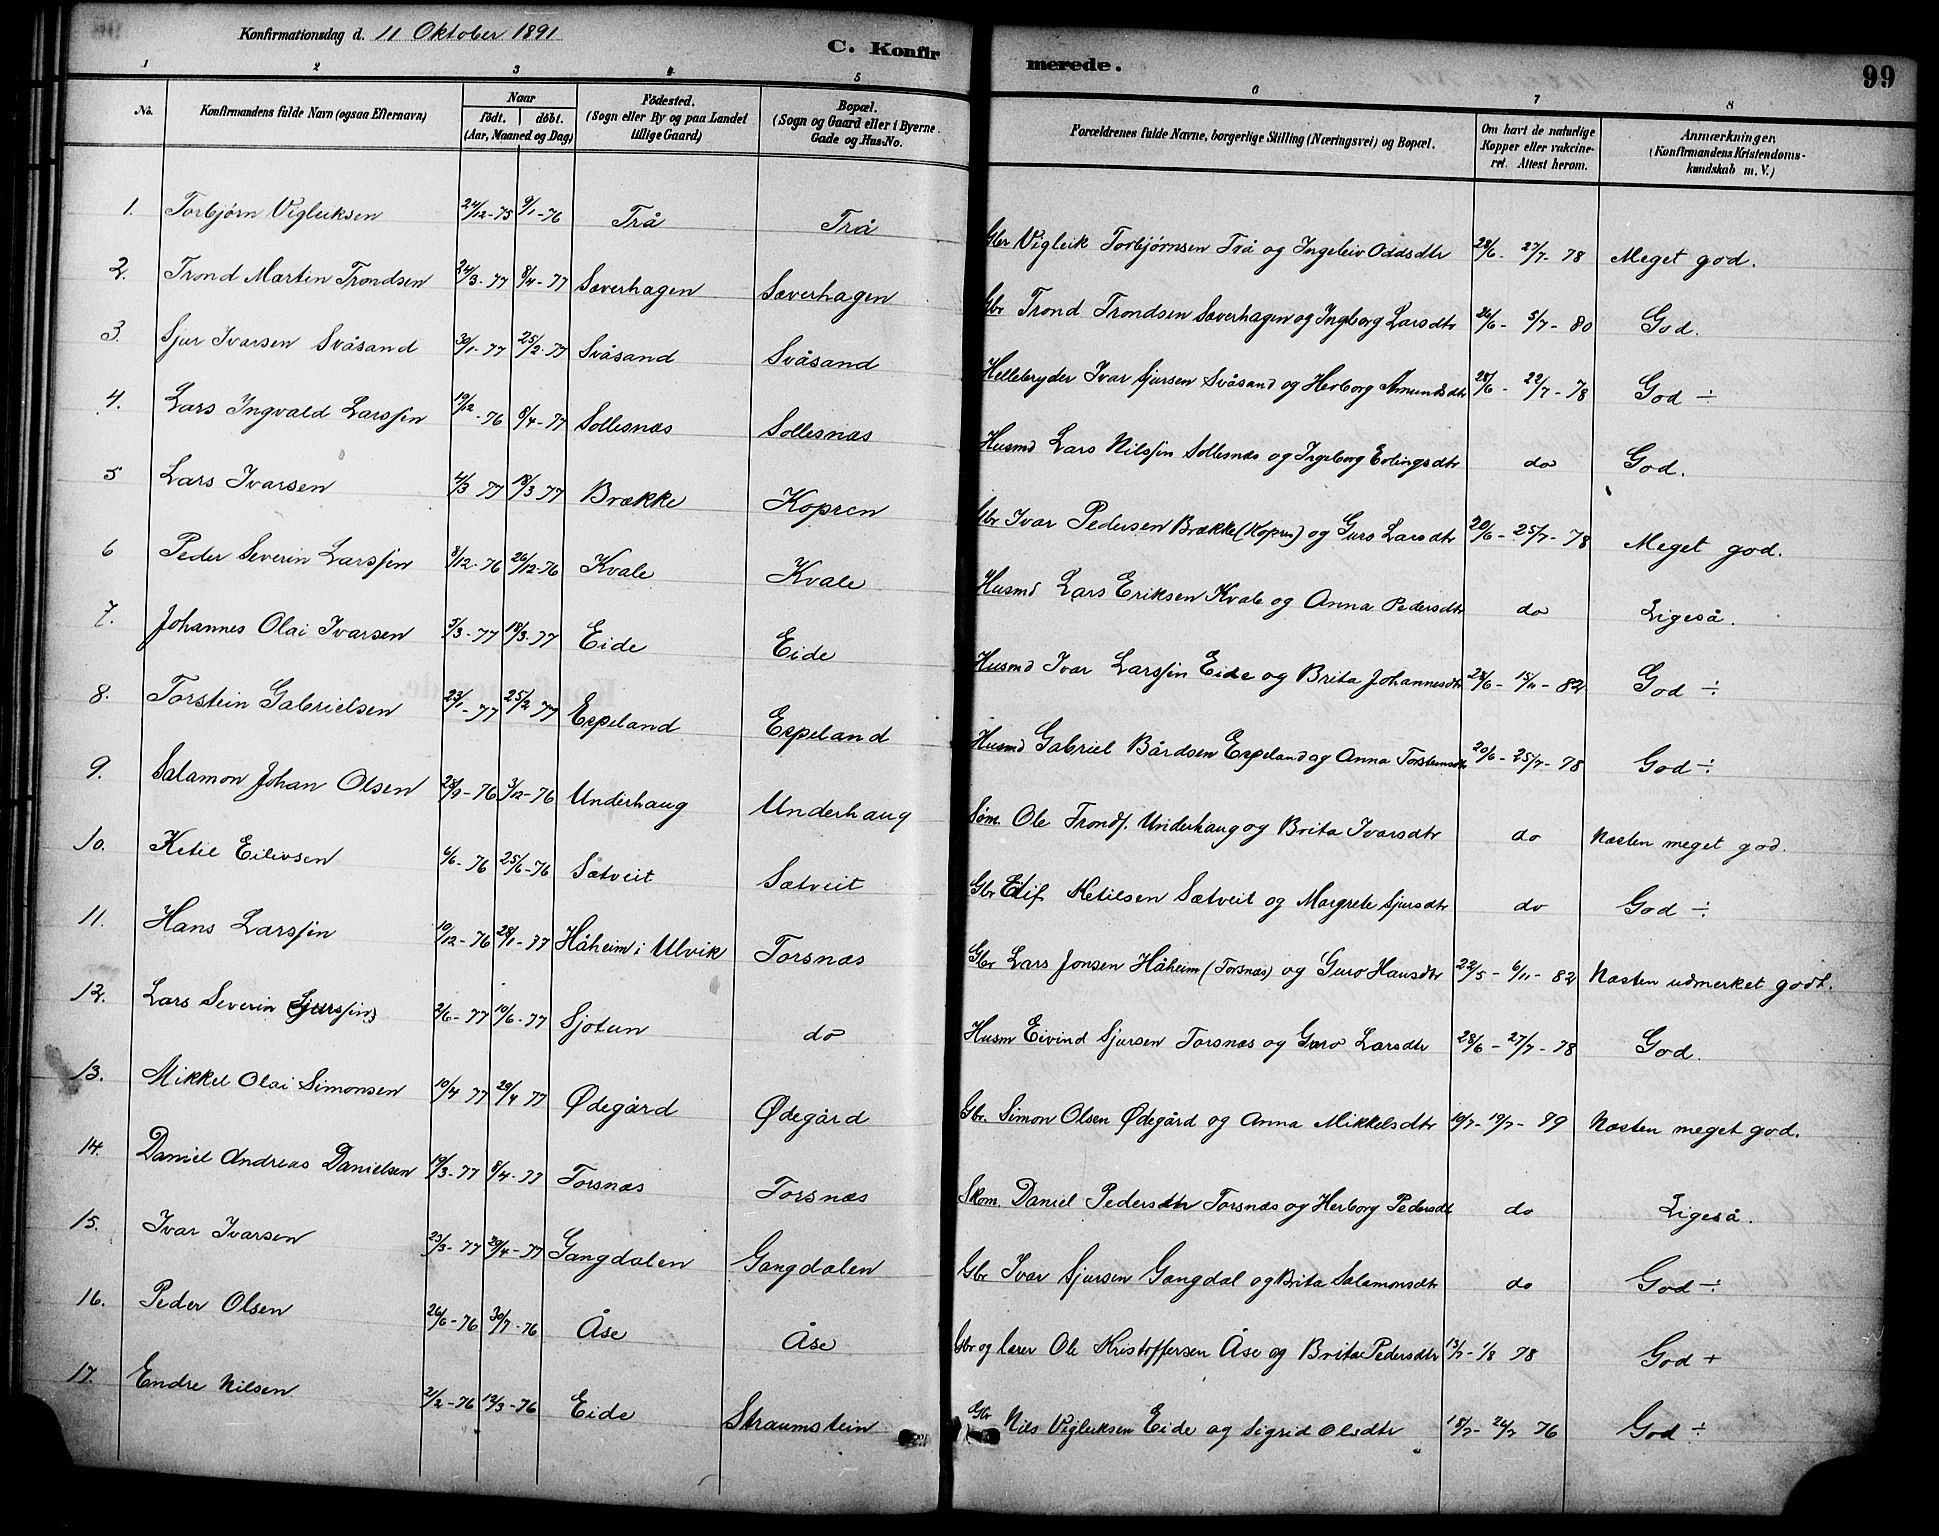 Konfirmationsdag d. 11 Oktober 1891
C. Konfirmerede. 99
1 2 3 4 5 6 7 8
No. Konfirmandens fulde Navn (ogsaa Efternavn) Naar født. døbt. (Aar, Maaned og Dag) Födested. (Sogn eller By og paa Landet tillige Gaard) Bopæl. (Sogn og Gaard eller i Byerne Gade og Hus-No. Forældrenes fulde Navne, borgerlige Stilling (Næringsvei) og Bopæl. Om havt de naturlige Kopper eller vakcineret. Attest herom. Anmærkninger. (Konfirmandens Kristendomskundskab m. V.)
1. Torbjørn Vigleiksen 24/12-75 9/1-76 Trå Trå Gbr Vigleik Torbjørnsen Trå og Ingeleiv Oddsdtr 28/6 - 27/7 - 78 Meget god.
2. Trond Martin Trondsen 24/3-77 8/4-77 Sæverhagen Sæverhagen Gbr Trond Trondsen Sæverhagen og Ingborg Larsdtr 26/6 - 5/7 - 80 God.
3. Sjur Ivarsen Svåsand 30/1-77 25/2-77 Svåsand Svåsand Hellebryder Ivar Sjursen Svåsand og Herborg Amundsdtr 28/6 - 22/7 - 78 God ÷
4. Lars Ingvald Larssen 19/12-76 8/4-77 Sollesnæs Sollesnæs Husmd Lars Nilssen Sollesnæs og Ingeborg Erlingsdtr do God.
5 Lars Ivarsen 4/3 77 18/3 77 Brække Kopren Gbr Ivar Pedersen Brække (Kopren) og Guro Larsdtr 20/6 - 25/7 - 78 Meget god.
6 Peder Severin Larssen 8/12-76 26/12-76 Kvale Kvale Husmd Lars Eriksen Kvale og Anna Pedersdtr do Ligeså.
7. Johannes Olai Ivarsen 5/3-77 18/3-77 Eide Eide Husmd Ivar Larssen Eide og Brita Johannesdtr 28/6 - 15/11 - 82 God ÷
8. Torstein Gabrielsen 23/1-77 25/2 77 Espeland Espeland Husmd Gabriel Bårdsen Espeland og Anna Torsteinsdtr 20/6 - 25/7 - 78 God ÷
9. Salamon Johan Olsen 28/9-76 3/12-76 Underhaug Underhaug Søm. Ole Tronds. Underhaug og Brita Ivarsdtr do Næsten meget god.
10. Ketil Eilivsen 6/6-76 25/6-76 Sætveit Sætveit Gbr Ketilsen Sætveit og Margrete Sjursdtr do God ÷
11. Hans Larssen 10/12-76 28/1-77 Håheim i Ulvik Torsnæs Gbr Lars Jonsen Håheim (Torsnæs) og Guro Hansdtr 22/5 - 6/11 - 82 Næsten udmerket godt.
12. Lars Severin 2/6-77 10/6-77 Sjotun do Husm Eivind Sjursen Torsnæs og Guro Larsdtr 28/6 - 27/7 - 78 God.
13. Mikkel Olai Simonsen 10/4 77 29/4 77 Ødegård Ødegård Gbr. Simon Olsen Ødegård og Anna Mikkelsdtr 10/7 - 19/7 - 89 Næsten meget god.
14. Daniel Andreas Danielsen 19/3-77 8/4-77 Torsnæs Torsnæs Skom. Daniel Pedersdtr Torsnæs og Herborg Pedersdtr do Ligeså.
15. Ivar Ivarsen 23/3-77 29/4-77 Gangdalen Gangdalen Gbr Ivar Sjursen Gangdal og Brita Salamonsdtr do God ÷
16. Peder Olsen 26/6-76 30/7-76 Åse Åse Gbr og lærer Ole Kristoffersen Åse og Brita Pedersdtr 13/7 - 1/8 78 God +
17. Endre Nilsen 2/2-76 12/3-76 Eide Straumstein Gbr Nils Vigleiksen Eide og Sigrid Olsdtr 18/7 - 26/7 76 God ÷